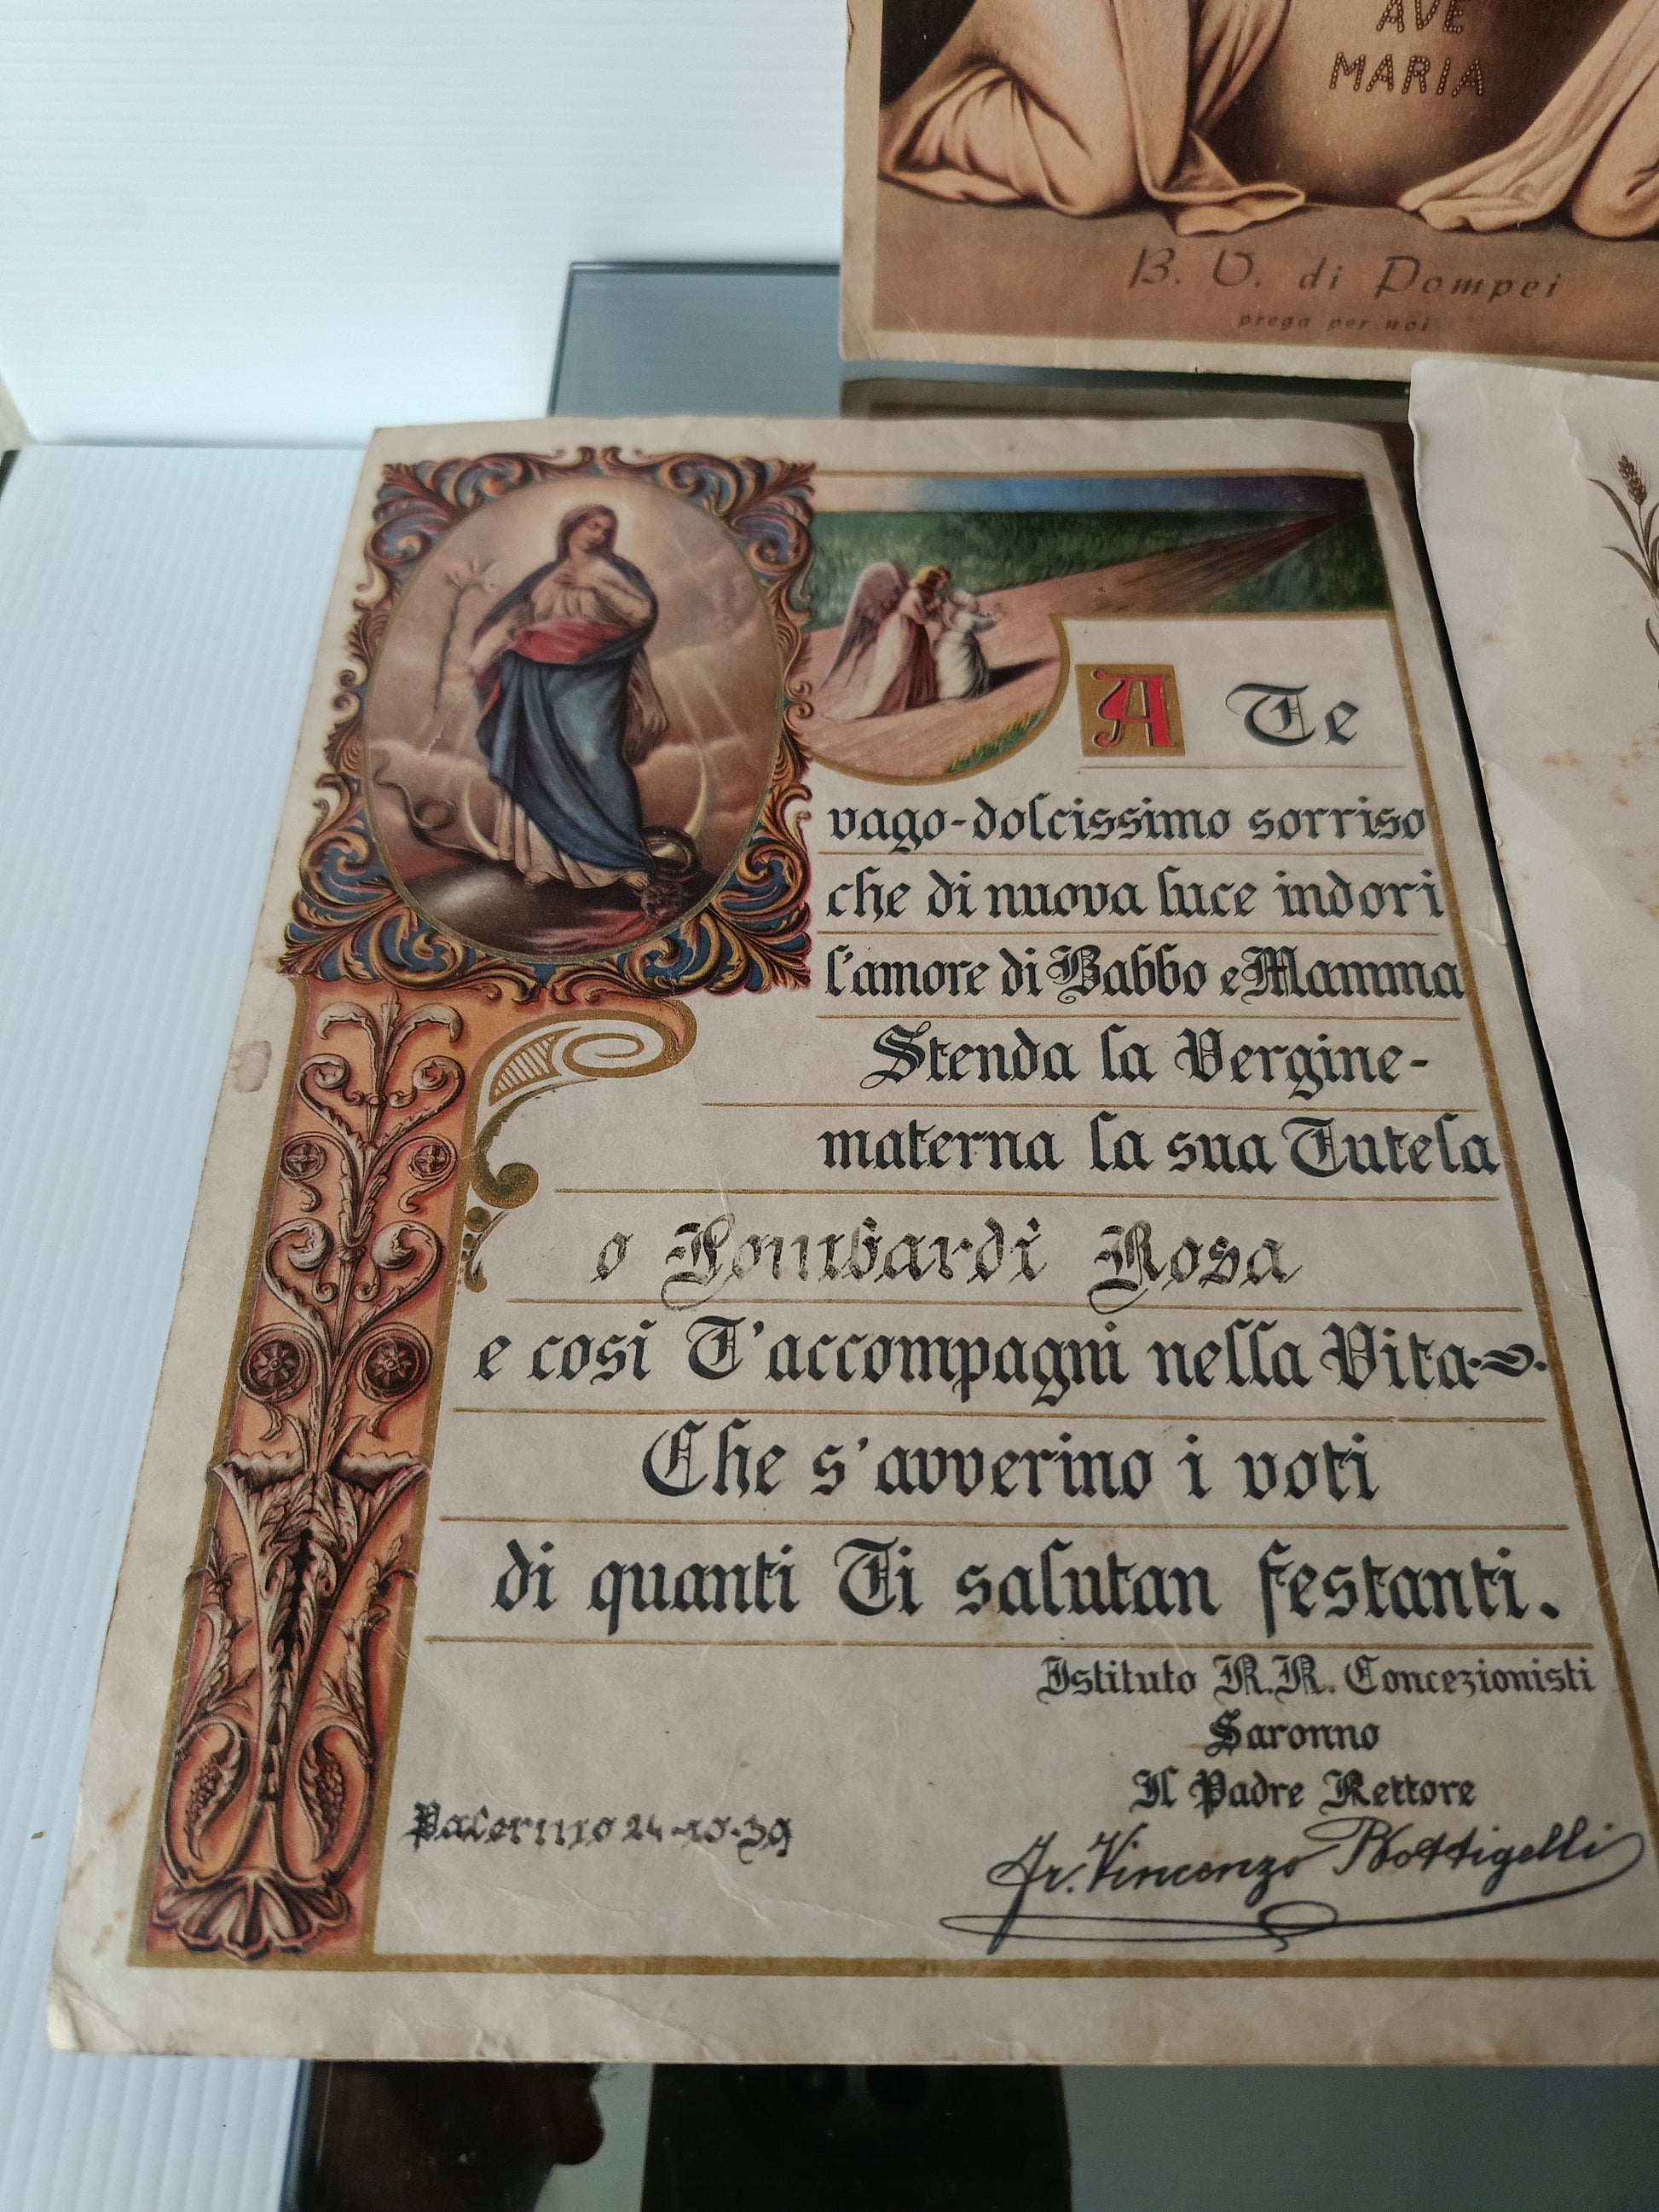 AVE
MARIA
B. V. di Pompei
prega per noi
A Te
vago-dolcissimo sorriso
che di nuova luce indori
l'amore di Babbo e Mamma
Stenda la Vergine-
materna la sua Tutela
o Lombardi Rosa
e cosi T'accompagni nella Vita
Che s'avverino i voti
di quanti Ti salutan festanti.
Istituto R.R. Concezionisti
Saronno
Il Padre Rettore
Palermo 24-10-39
Fr. Vincenzo Bottigelli